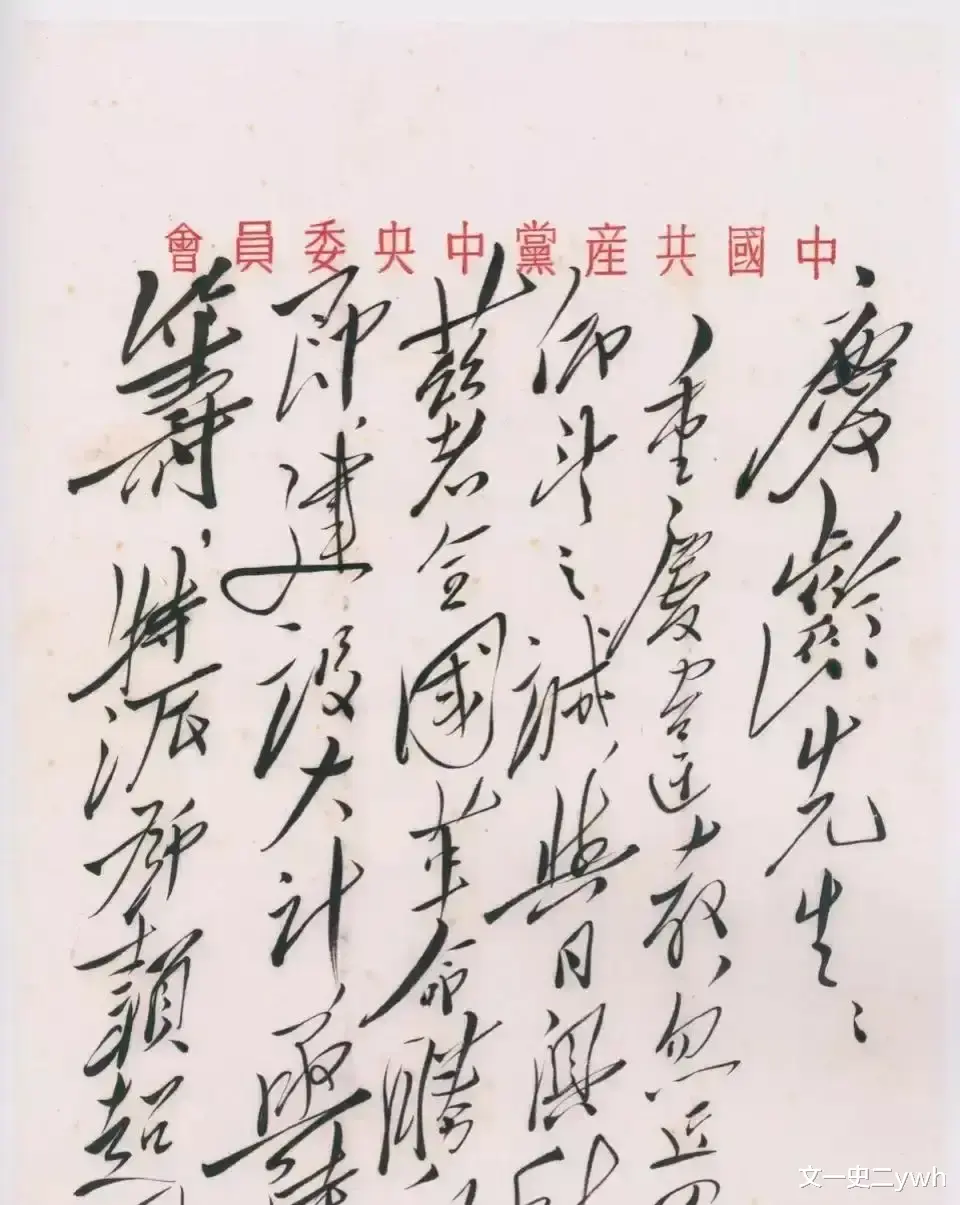 中國共産黨中央委員會
慶齡先生：
重慶違大教，忽近四
仰之誠，與日俱
茲者全國革命勝
即，建設大計，亟待
籌，特派鄧穎超
文一史二ywh